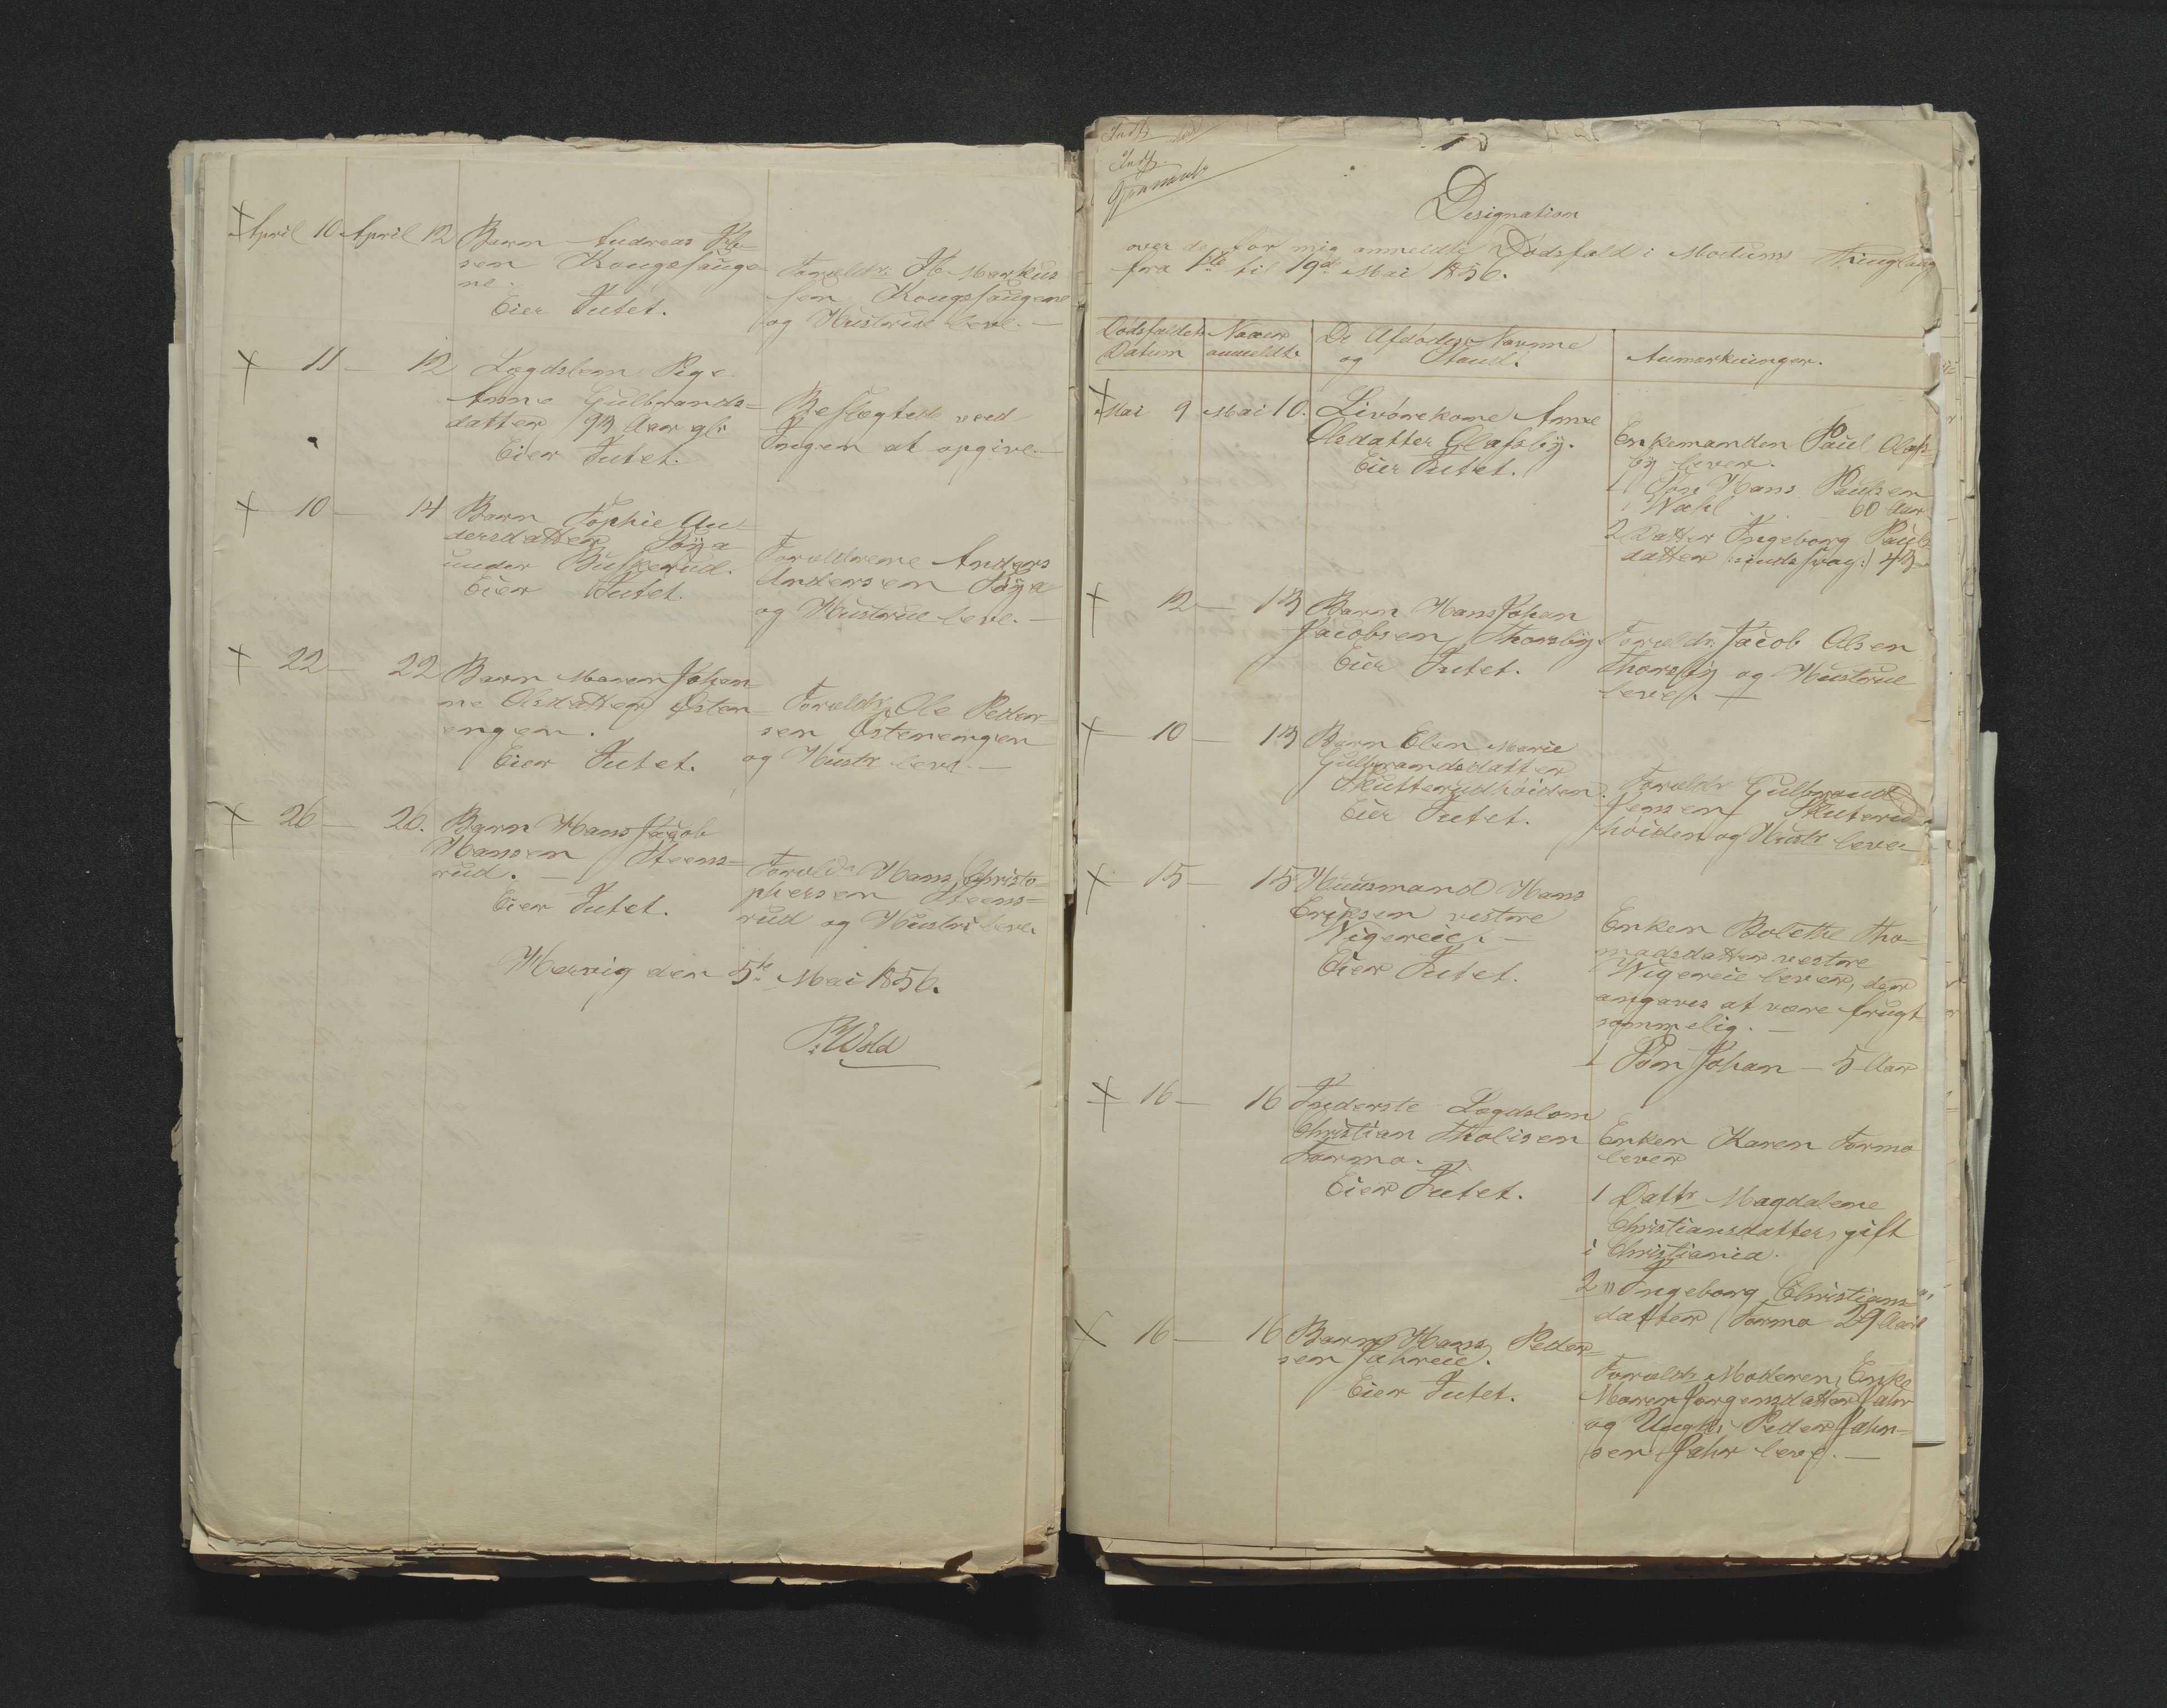 April 10 April 12 Barn Andreas Ib-
sen Kongssauge-
ne.
Eier Intet.
Forældr. Ib Markus
sen Kongssaugene
og Hustrue leve. —
11 — 12 Lægdslem Pige
Anne Gulbrands-
datter, 93 Aar gl.
Eier Intet.
Beslægtede ved
Ingen at opgive. —
10 — 14 Barn Sophie An-
dersdatter Døya
under Buskerud.
Eier Intet.
Forældrene Anders
Andersen Døya
og Hustrue leve. —
22 — 22 Barn Maren Johan-
ne Olsdatter Østen-
engen.
Eier Intet.
Forældr. Ole Peder-
sen Østenengen
og Hustr. leve. —
26 — 26. Barn Hans Jacob
Hansen Steens-
rud. —
Eier Intet.
Foræld. Hans Christo-
phersen Steens-
rud og Hustru leve.
Hervig den 5te Mai 1856.
P. Wold
Indf.
Indf.
Designation
over de for mig anmeldte Dødsfald i Modums Thinglaug
fra 1ste til 19de Mai 1856.
Dødsfaldets
Datum
Naar
anmeldt.
De Afdødes Navne
og Stand.
Anmærkninger.
Mai 9 Mai 10. Livørekone Anne
Olsdatter Olafsby.
Eier Intet.
Enkemanden Paul Olafs-
by lever.
1 Søn Hans Paulsen
Wahl 60 Aar
2 Datter Ingeborg Pauls
datter 43
12 — 13 Barn Hans Johan
Jacobsen Thorsby.
Eier Intet.
Forældr. Jacob Olsen
Thorsby og Hustrue
leve. —
10 — 13 Barn Elen Marie
Gulbrandsdatter
Skutterudhøiden.
Eier Intet.
Forældr. Gulbrand
Jensen Skuterud
høiden og Hustr. leve
15 — 15 Huusmand Hans
Eriksen vestre
Wigereie. —
Eier Intet.
Enken Bolethe Tho-
madsdatter vestre
Wigereie lever, der
angaves at være frugt
sommelig. —
1 Søn Johan — 5 Aar
16 — 16 Inderste Lægdslem
Christian Tholisen
Formo.
Eier Intet.
Enken Karen Formo
lever
1 Dattr. Magdalene
Christiansdatter, gift
i Christiania.
2 " Ingeborg Christians-
datter Formo 29 Aar
16 — 16 Barn Hans Peder-
sen Jahreie.
Eier Intet.
Forældr. Moderen, Enke
Maren Jørgensdatter Jahr
og Ungk. Peder Jahn-
sen Jahr leve. —